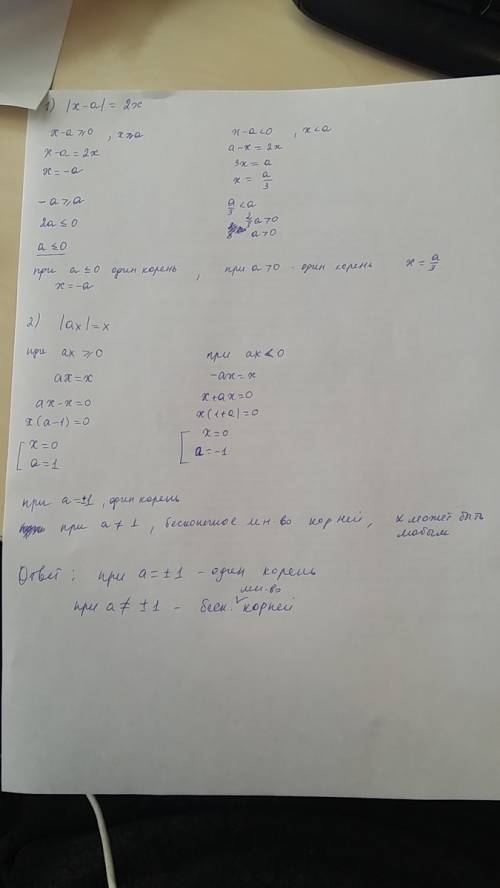 1) |x-a| = 2x
x-a ≥ 0 , x ≥ a
x-a = 2x
x = -a
-a ≥ a
2a ≤ 0
a ≤ 0
x-a<0 , x<a
a-x = 2x
3x = a
x = a/3
a/3 < a
2/3 a > 0
a > 0
при a ≤ 0 один корень , при a > 0 - один корень x = a/3
x = -a
2) |ax| = x
при ax ≥ 0
ax = x
ax - x = 0
x(a-1) = 0
[ x = 0
a = 1
при ax < 0
-ax = x
x + ax = 0
x(1+a) = 0
[ x = 0
a = -1
при a = ±1 , один корень
при a ≠ 1 , бесконечное мн-во корней, x может быть
любым
Ответ: при a = ±1 - один корень
при a ≠ ±1 - беск. мн-во корней